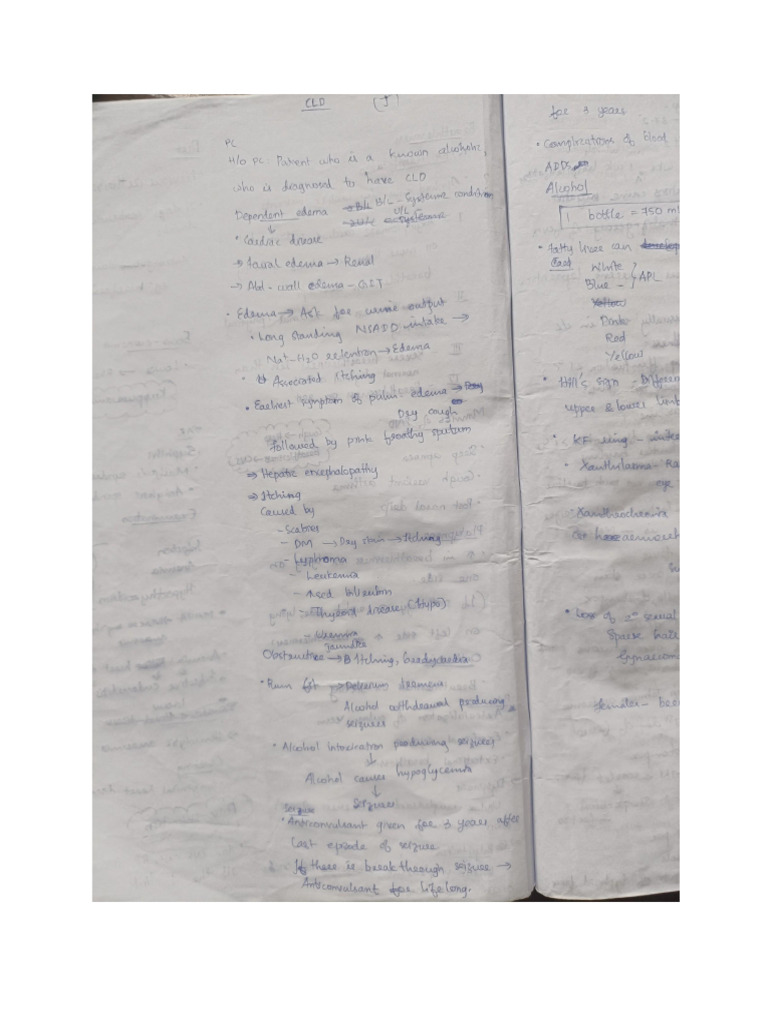 CLD (I)
PC
H/O PC: Patient who is a known alcoholic,
who is diagnosed to have CLD
Dependent edema B/L - Systemic condition
U/L
↓
• Cardiac disease
→ Facial edema → Renal
→ Abd - wall edema - GIT
• Edema → Ask for urine output
• Long standing NSAID intake →
Na+ - H2O retention → Edema
• Associated itching
• Earliest symptom of pulm. edema →
Dry cough
Followed by pink froathy sputum
⇒ Hepatic encephalopathy
⇒ Itching
Caused by
- Scabies
- DM → Dry skin → Itching
- Lymphoma
- Leukemia
- Thyroid disease (Hypo)
- Uremia
Obstructive jaundice → Itching, bradycardia
• Rum fit → Delerium
Alcohol withdrawal producing
seizures
• Alcohol intoxication producing seizures
↓
Alcohol causes hypoglycemia
↓
Seizures
Seizure
• Anticonvulsant given for 3 years after
last episode of seizure
If there is breakthrough seizure →
Anticonvulsant for lifelong.
for 3 years
• Complications of blood
ADDs
Alcohol
1 bottle = 750 ml
• Fatty liver can
White
Blue - } APL
Pink
Red
Yellow
• Hill's sign - Differen
upper & lower limb
• KF ring -
• Xanthelasma -
eye
Xanthochromia
• Loss of 2° sexual
Sparse hair
Gynaecom
Females -